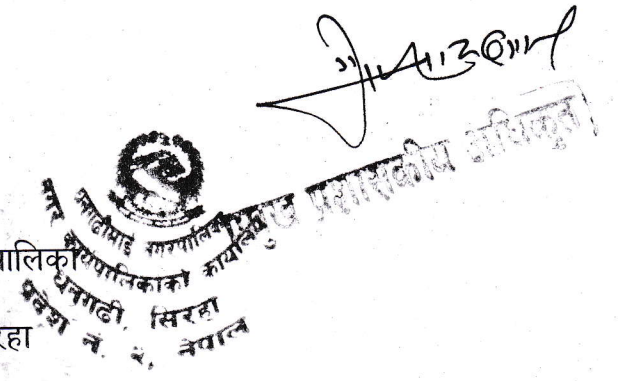 प्रमुख प्रशासकीय अधिकृत
धनगढीमाई नगरपालिका
नगर कार्यपालिकाको कार्यालय
धनगढी, सिरहा
प्रदेश नं. २, नेपाल
पालिका
रहा